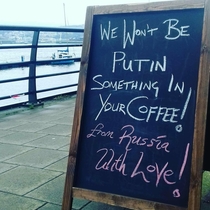 We Won't Be
Putin
Something In
Your Coffee!
from Russia
With Love!